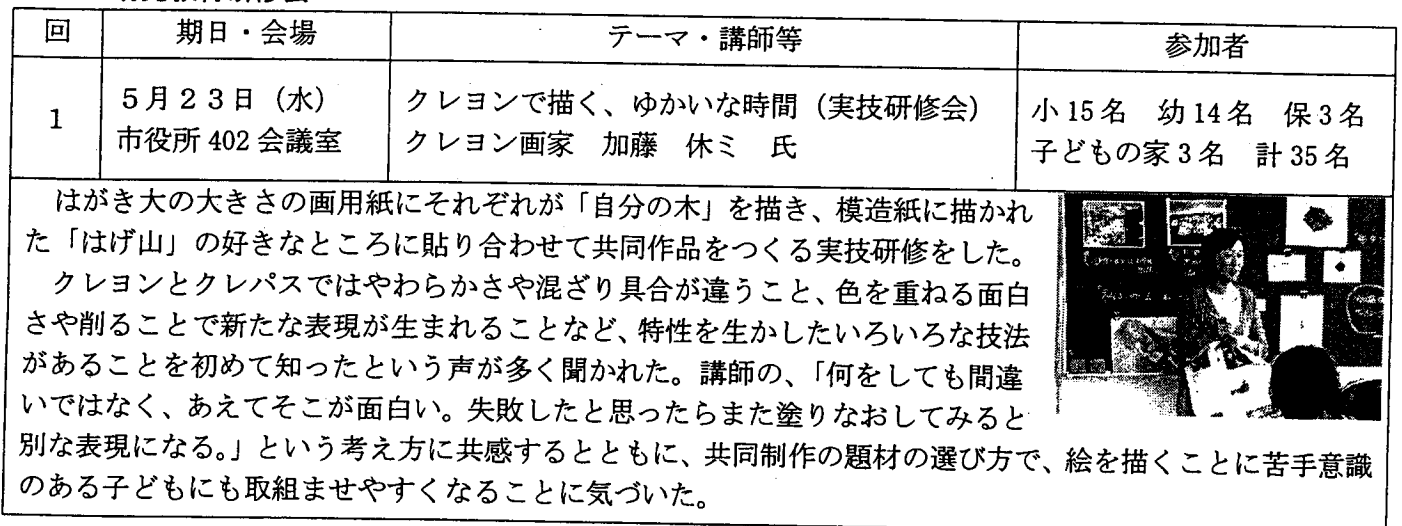 回 期日・会場 テーマ・講師等 参加者
1 5月23日（水） クレヨンで描く、ゆかいな時間（実技研修会） 小15名 幼14名 保3名
市役所402会議室 クレヨン画家 加藤 休ミ 氏 子どもの家3名 計35名
はがき大の大きさの画用紙にそれぞれが「自分の木」を描き、模造紙に描かれ
た「はげ山」の好きなところに貼り合わせて共同作品をつくる実技研修をした。
クレヨンとクレパスではやわらかさや混ざり具合が違うこと、色を重ねる面白
さや削ることで新たな表現が生まれることなど、特性を生かしたいろいろな技法
があることを初めて知ったという声が多く聞かれた。講師の、「何をしても間違
いではなく、あえてそこが面白い。失敗したと思ったらまた塗りなおしてみると
別な表現になる。」という考え方に共感するとともに、共同制作の題材の選び方で、絵を描くことに苦手意識
のある子どもにも取組ませやすくなることに気づいた。